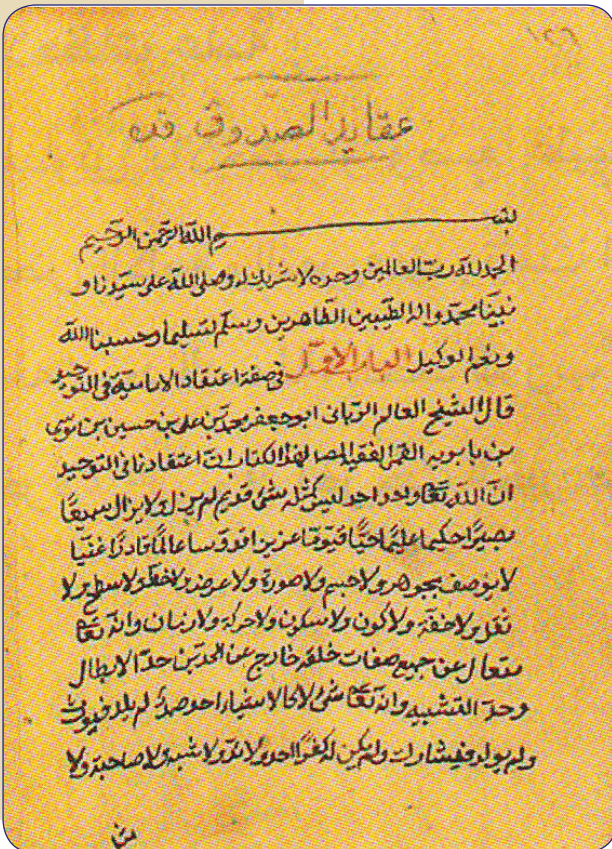 ١٢٦
عقايد الصدوق قده
بسم الله الرحمن الرحيم
الحمد لله رب العالمين وحده لا شريك له وصلى الله على سيدنا و
نبينا محمد واله الطيبين الطاهرين وسلم تسليما وحسبنا الله
ونعم الوكيل الباب الاول في صفة اعتقاد الامامية في التوحيد
قال الشيخ العالم الرباني ابو جعفر محمد بن علي بن حسين بن موسى
بن بابويه القمي الفقيه المصنف لهذا الكتاب ان اعتقادنا في التوحيد
ان الله تعا واحد احد ليس كمثله شئ قديم لم يزل ولا يزال سميعا
بصيرا حكيما عليما حيا قيوما عزيزا قدوسا عالما قادرا غنيا
لا يوصف بجوهر ولا جسم ولا صورة ولا عرض ولا خط ولا سطح ولا
ثقل ولا خفة ولا كون ولا سكون ولا حركة ولا زمان وانه تعا
متعال عن جميع صفات خلقه خارج عن الحدين حد الابطال
وحد التشبيه وانه تعا شئ لا كالاشياء احد صمد لم يلد فيورث
ولم يولد فيشارك ولم يكن له كفوا احد ولا ند ولا شبه ولا صاحبة ولا